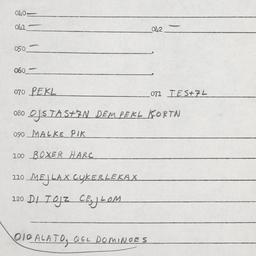 040 —
041 — 042 —
050 —
060 —
070 PEKL 071 TES+7L
080 OJSTAS+7N DEMPEKL KORTN
090 MALKE PIK
100 BOXER HARC
110 MEJLAX CUKERLEKAX
120 DI TOJZ CEJLOM
010 ALATO, OGL DOMINOES